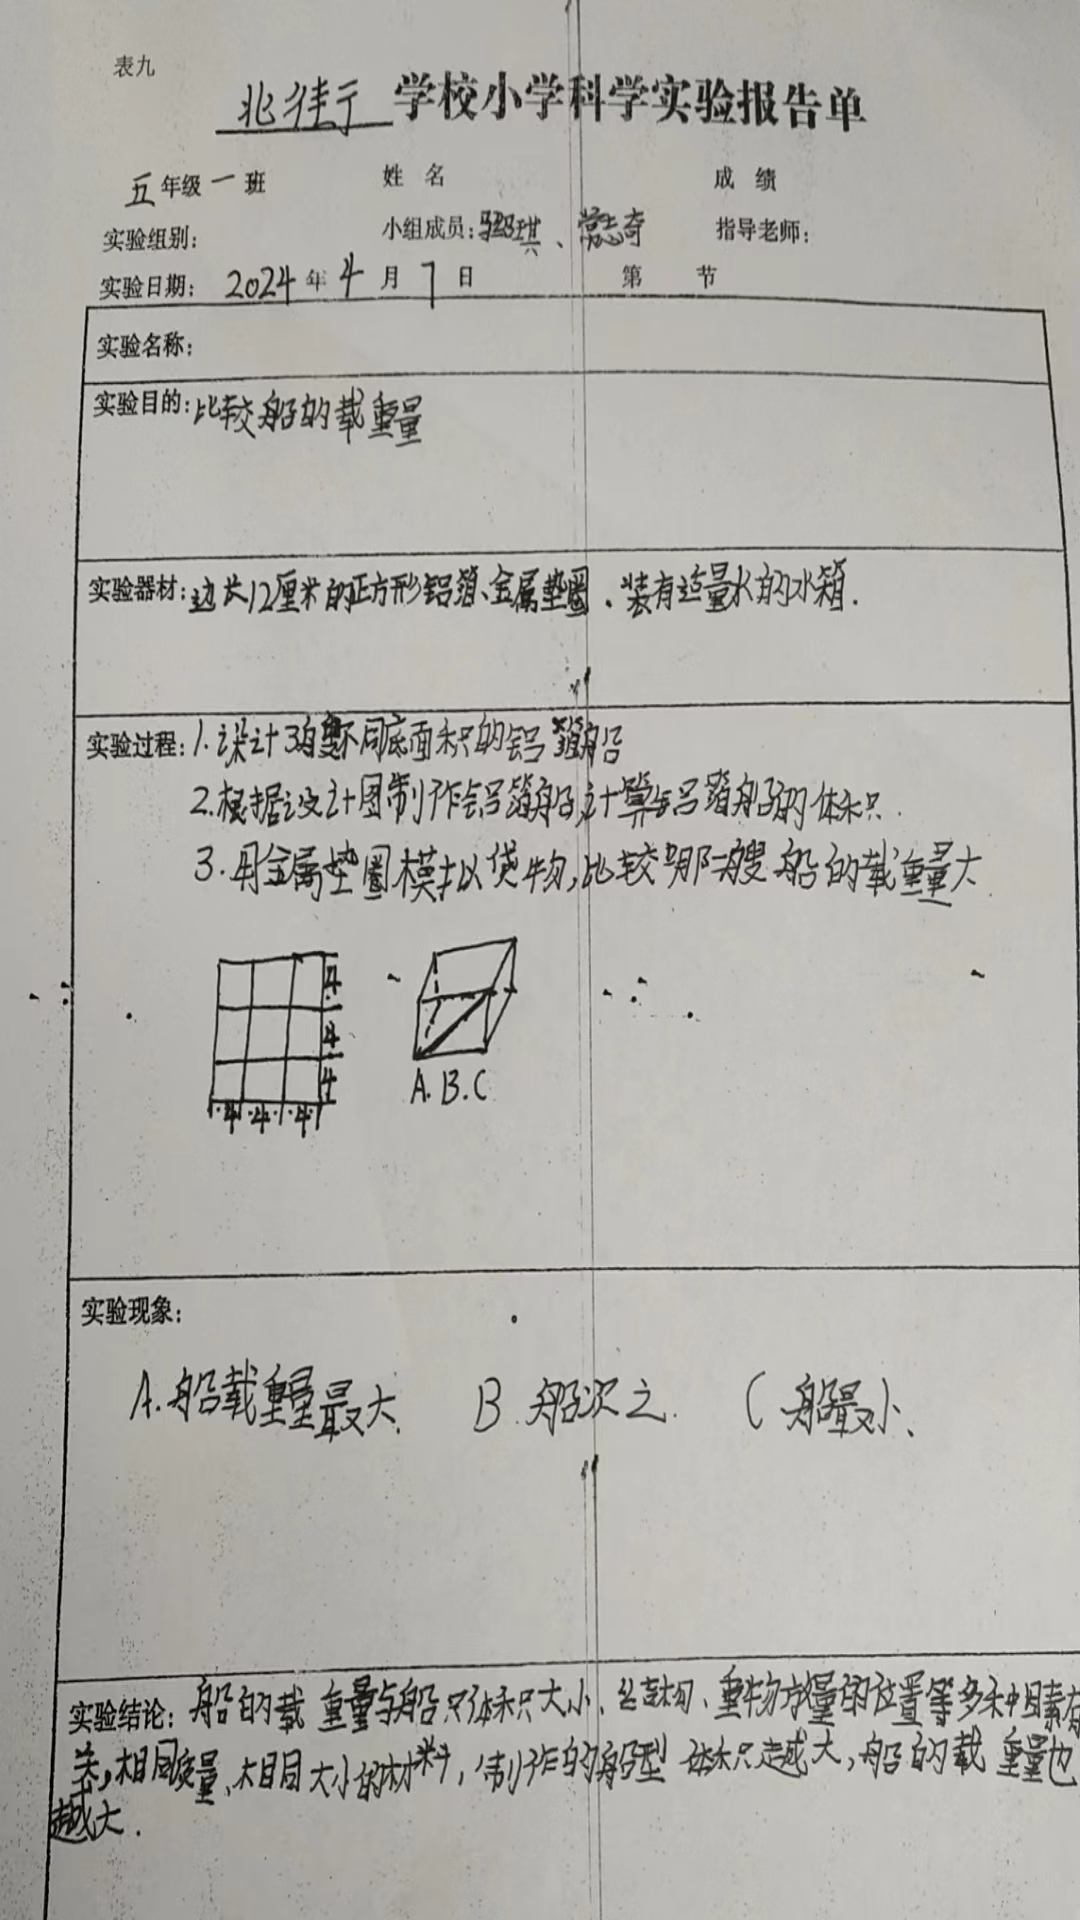 表九
北佳于学校小学科学实验报告单
五年级一班 姓 名 成 绩
实验组别: 小组成员: 琪、常志奇 指导老师:
实验日期: 2024年4月7日 第 节
实验名称:
实验目的:比较船的载重量
实验器材:边长12厘米的正方形铝箔、金属垫圈、装有适量水的水箱.
实验过程:1.设计3艘不同底面积的铝箔船
2.根据设计图制作铝箔船,计算铝箔船的体积.
3.用金属垫圈模拟货物,比较哪一艘船的载重量大
4
4
4
4 4 4
A.B.C
实验现象:
A.船载重量最大. B 船次之. C 船最小、
实验结论:船的载重量与船只体积大小、结构、重物放量的位置等多种因素有
关,相同质量、相同大小的材料,制作的船型体积越大,船的载重量也
越大.